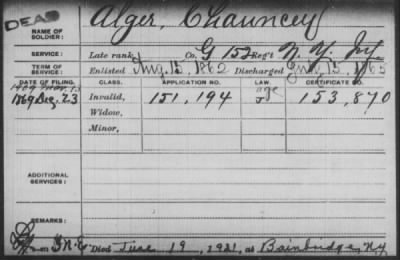 DEAD
NAME OF SOLDIER: Alger, Chauncey
SERVICE: Late rank, Co. G 152 Reg't N. Y. Inf
TERM OF SERVICE: Enlisted Aug. 15, 1862 Discharged 15, 1865
DATE OF FILING. CLASS. APPLICATION NO. LAW. CERTIFICATE NO.
1869 Dec. 23 Invalid, 151,194 age 153,870
Widow,
Minor,
ADDITIONAL SERVICES:
REMARKS:
Died June 19, 1921, at Bainbridge, N.Y.